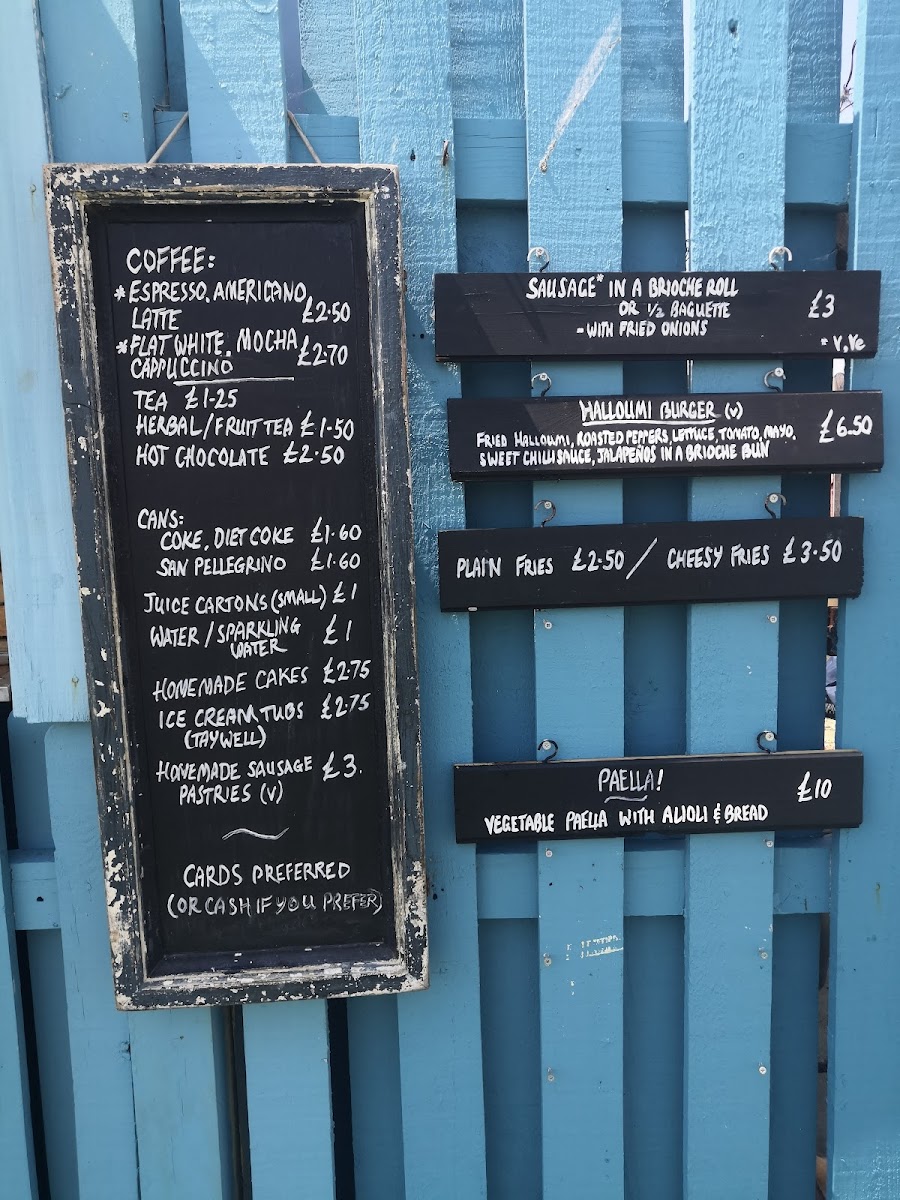 COFFEE:
*ESPRESSO, AMERICANO,
LATTE £2.50
*FLAT WHITE, MOCHA
CAPPUCCINO £2.70
TEA £1-25
HERBAL/FRUIT TEA £1-50
HOT CHOCOLATE £2.50
CANS:
COKE, DIET COKE £1.60
SAN PELLEGRINO £1.60
JUICE CARTONS (SMALL) £1
WATER / SPARKLING £1
WATER
HOMEMADE CAKES £2.75
ICE CREAM TUBS £2.75
(TAYWELL)
HOMEMADE SAUSAGE £3.
PASTRIES (V)
CARDS PREFERRED
(OR CASH IF YOU PREFER)
SAUSAGE* IN A BRIOCHE ROLL
OR 1/2 BAGUETTE £3
- WITH FRIED ONIONS
* V, Ve
HALLOUMI BURGER (V)
FRIED HALLOUMI, ROASTED PEPPERS, LETTUCE, TOMATO, MAYO, £6.50
SWEET CHILLI SAUCE, JALAPEÑOS IN A BRIOCHE BUN
PLAIN FRIES £2.50 / CHEESY FRIES £3.50
PAELLA! £10
VEGETABLE PAELLA WITH ALIOLI & BREAD